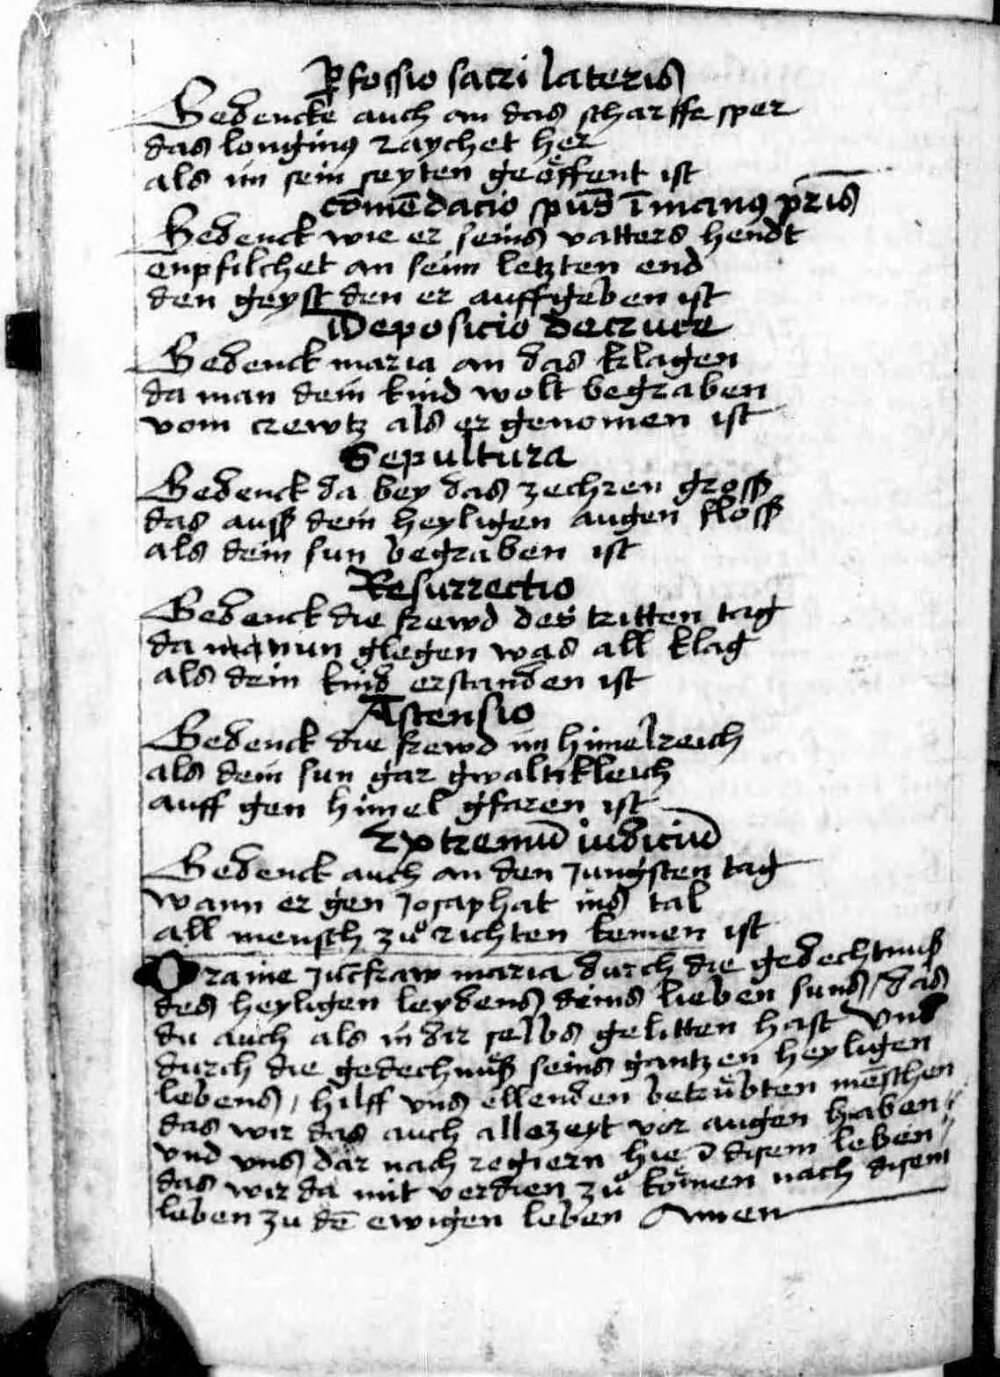 Pfossio sacri lateris
Gedencke auch an das scharffe sper
das longinꝰ raychet her
als im sein seyten geöffent ist
com̄edacio spūs ī manꝰ pr̄is
Gedenck wie er seins vatters hendt
enpfilchet an seim letzten end
den geyst den er auffgeben ist
Deposicio de cruce
Gedenck maria an das klagen
da man dein kind wolt begraben
vom crewtz als er genomen ist
Sepultura
Gedenck da bey das zechren gross
das auss dein heyligen augen floss
als dein sun begraben ist
Resurrectio
Gedenck die frewd des tritten tag
da nun glegen was all klag
als dein kind erstanden ist
Ascensio
Gedenck die frewd im himelreich
als dein sun gar gwaltikleich
auff gen himel gfaren ist
Extremū iudiciū
Gedenck auch an den jungsten tag
wann er gen Josaphat ins tal
all mensch zů richten kemen ist
O raine junckfraw maria durch die gedechtnuß
des heyligen leydens deins lieben suns / das
du auch als in dir selbs gelitten hast Vnd
durch die gedechnuß seins gantzen heyligen
lebens / hilff vns ellenden betrůbten mēschen
das wir das auch allezeyt vor augen haben
vnd vns dar nach regiern hie ī disem leben
das wir da mit verdien zů kömen nach disem
leben zu dē ewigen leben Amen